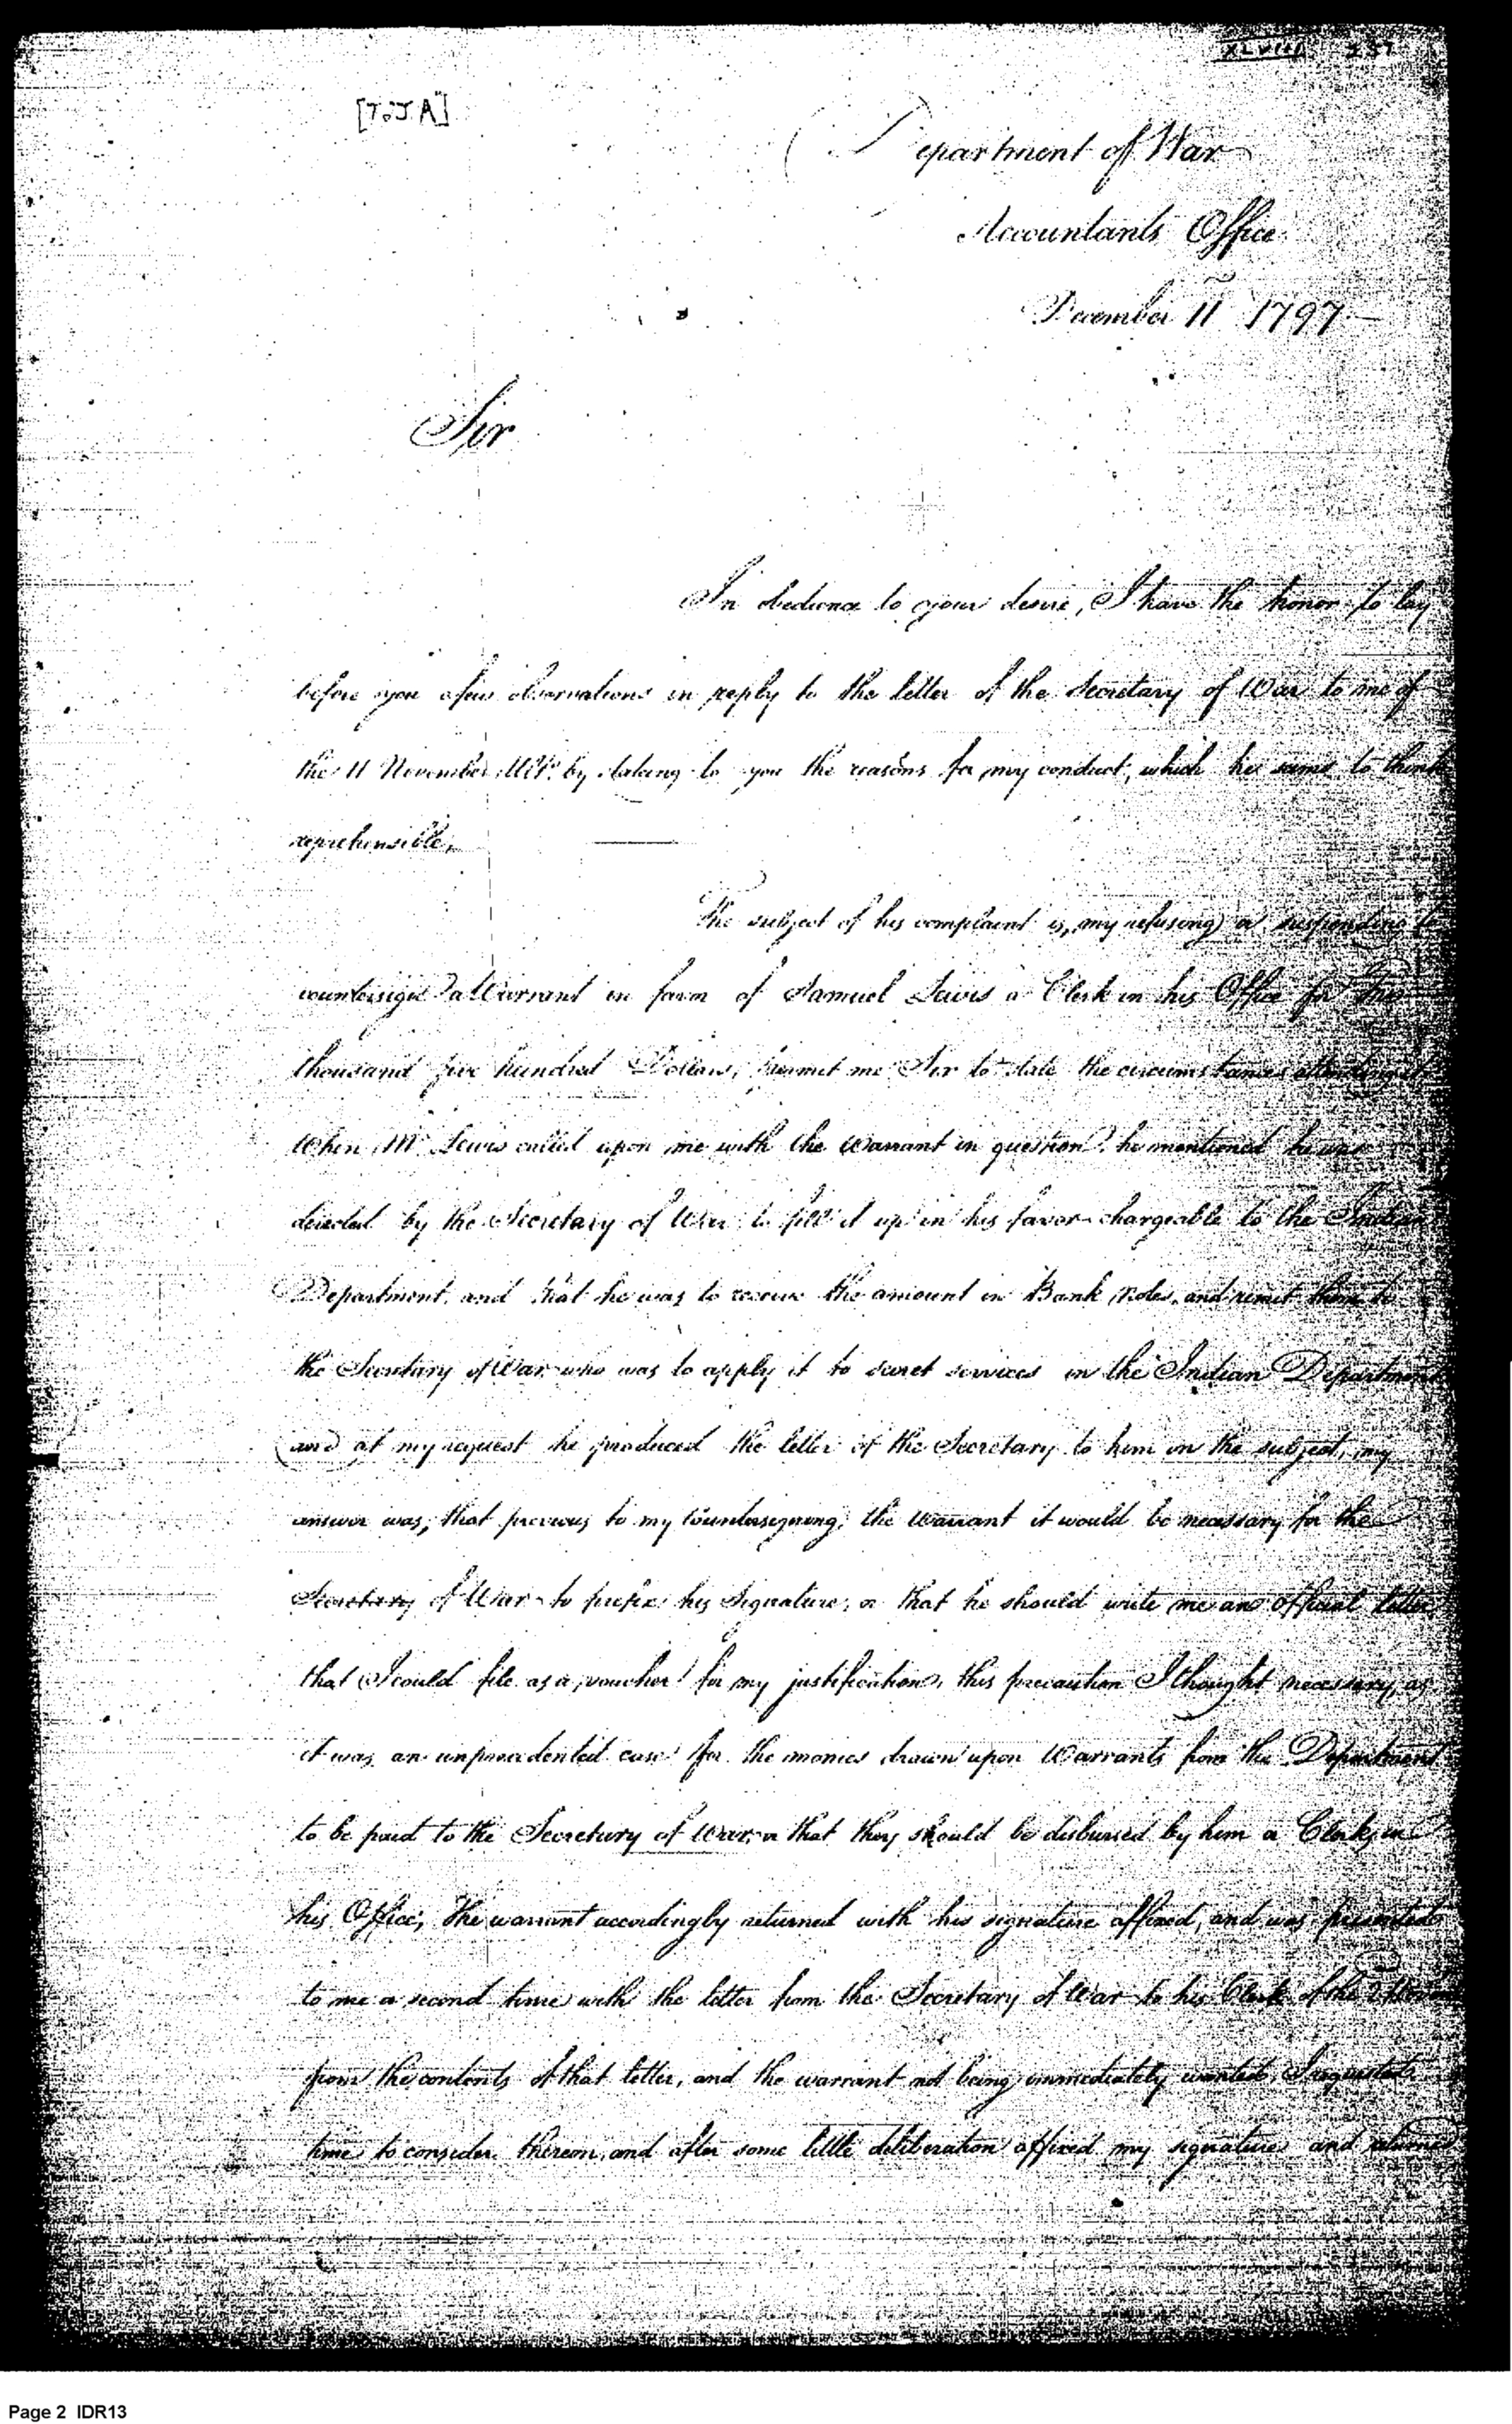 XLVIII 237
[To J A]
Department of War
Accountants Office
December 11 1797
Sir
In obedience to your desire, I have the honor to lay
before you a few observations in reply to the letter of the Secretary of War to me of
the 11 November Ulto. by stating to you the reasons for my conduct, which he seems to think
reprehensible,
The subject of his complaint is, my refusing or suspending to
countersign a Warrant in favor of Samuel Lewis a Clerk in his Office for
thousand five hundred Dollars, permit me Sir to state the circumstances attending it
When Mr Lewis called upon me with the Warrant in question, he mentioned he was
directed by the Secretary of War to fill it up in his favor chargeable to the Indian
Department, and that he was to receive the amount in Bank Notes, and remit them to
the Secretary of War who was to apply it to secret services in the Indian Department
and at my request he produced the letter of the Secretary to him on the subject, my
answer was, that previous to my Countersigning, the Warrant it would be necessary for the
Secretary of War to prefix his Signature, or that he should write me an official letter
that I could file as a voucher for my justification, this precaution I thought necessary, as
it was an unprecedented case for the monies drawn upon Warrants from the Department
to be paid to the Secretary of War, or that they should be disbursed by him a Clerk, in
his Office, The warrant accordingly returned with his signature affixed, and was presented
to me a second time with the letter from the Secretary of War to his Clerk of the
from the contents of that letter, and the warrant not being immediately wanted, I requested
time to consider thereon, and after some little deliberation affixed my signature and returned
Page 2 IDR13